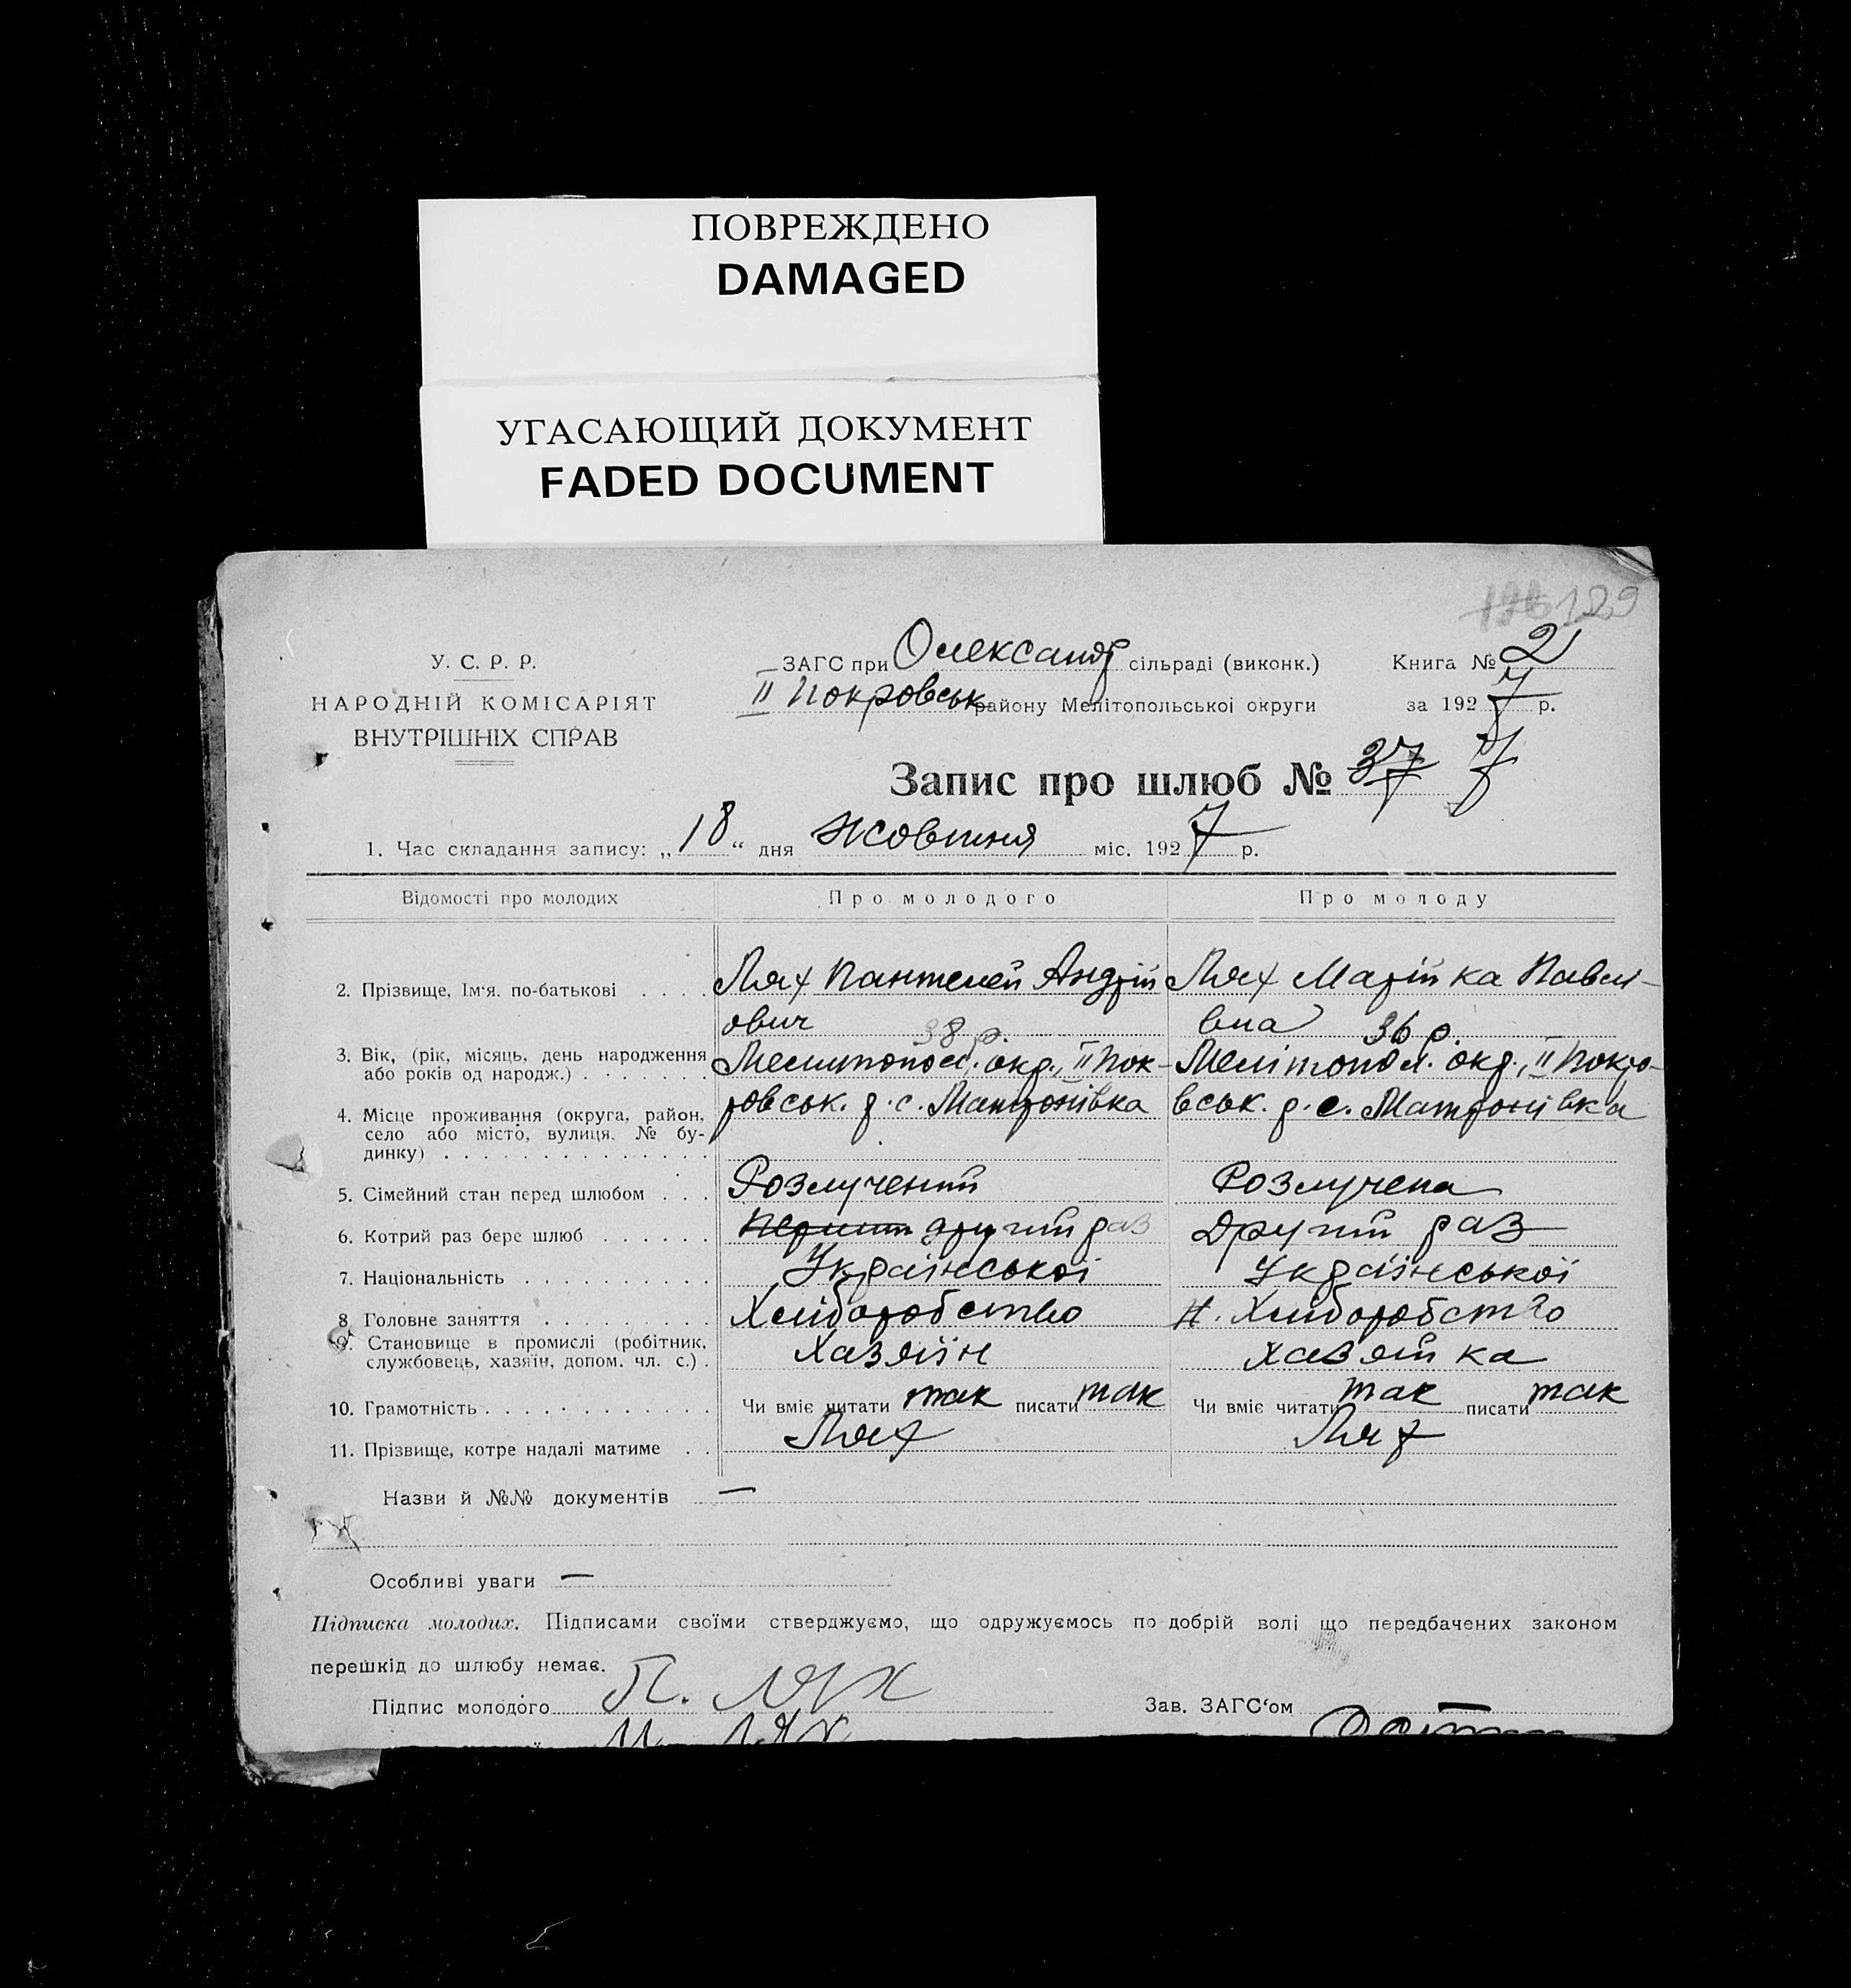 ПОВРЕЖДЕНО
DAMAGED
УГАСАЮЩИЙ ДОКУМЕНТ
FADED DOCUMENT
129
У. С. Р. Р.
НАРОДНІЙ КОМІСАРІЯТ
ВНУТРІШНІХ СПРАВ
ЗАГС при Олександр сільраді (виконк.)
II Покровськ району Мелітопольської округи
Книга № 2
за 1927 р.
Запис про шлюб № 37 7
1. Час складання запису: „18“ дня Жовтня міс. 1927 р.
Відомості про молодих Про молодого Про молоду
2. Прізвище, Ім'я. по-батькові . . . . Лях Пантелей Андрій Лях Марійка Павлі-
ович 38 р. вна 36 р.
3. Вік, (рік, місяць, день народження Мелитопол. окр., II Пок- Мелітопол. окр., II Покро-
або років од народж.) . . . . . . .
4. Місце проживання (округа, район, ровськ. р. с. Матронівка вськ. р. с. Матронівка
село або місто, вулиця. № бу-
динку) . . . . . . . . . . . . . .
5. Сімейний стан перед шлюбом . . . Розлучений Розлучена
6. Котрий раз бере шлюб . . . . . . Перший другий раз Другий раз
7. Національність . . . . . . . . . . Української Української
8. Головне заняття . . . . . . . . . Хліборобство Н. Хліборобство
9. Становище в промислі (робітник, Хазяїн Хазяйка
службовець, хазяїн, допом. чл. с.) .
10. Грамотність . . . . . . . . . . . . Чи вміє читати так писати так Чи вміє читати так писати так
11. Прізвище, котре надалі матиме . . Лях Лях
Назви й №№ документів —
Особливі уваги —
Підписка молодих. Підписами своїми стверджуємо, що одружуємось по добрій волі що передбачених законом
перешкід до шлюбу немає.
Підпис молодого П. Лях Зав. ЗАГС‘ом
М. Лях